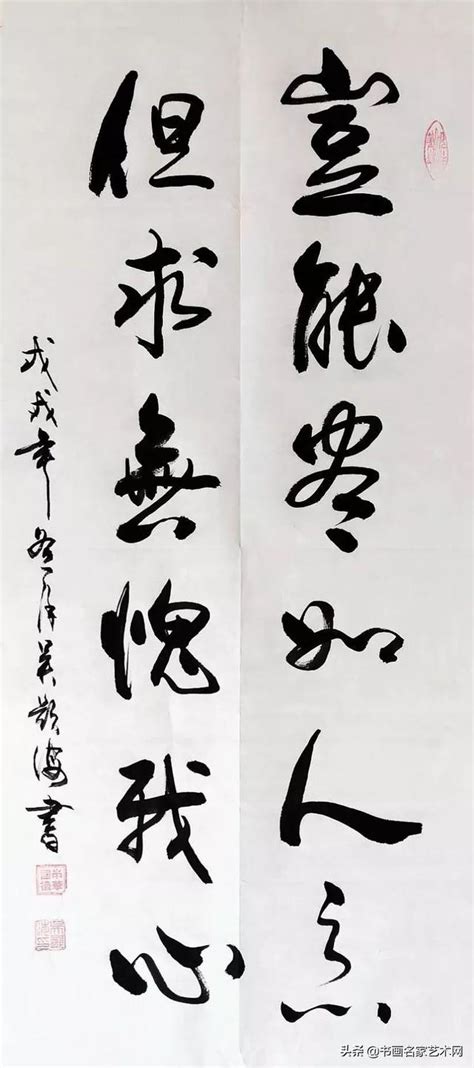 豈能尽如人意
但求無愧我心
戊戌年吴海書
头条 @书画名家艺术网